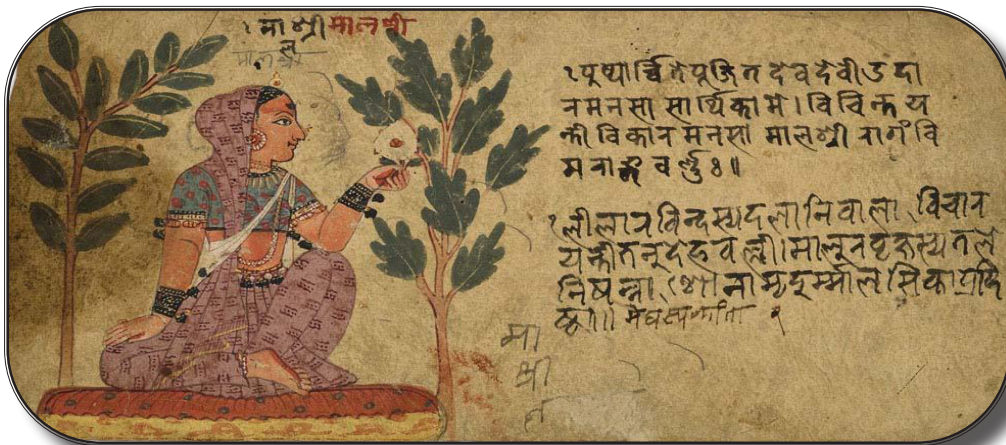 १ मा श्री मालश्री
ल
१ पुष्पार्चिते पूजित देवदेवी उदा
नमनसा सार्थिकामे। विचिन्त य
न्ती विकारमनसा मालश्री रागं वि
मरा वर्ण्णः॥
१ लीलारविन्दस्यदलानिवाला विचार
यन्ती तनुदेहवल्ली। मालूरवृक्षस्य तले
निषन्ना नामृदुर्म्मालसिकाप्रदि
ष्टा॥
मा
श्री
ल